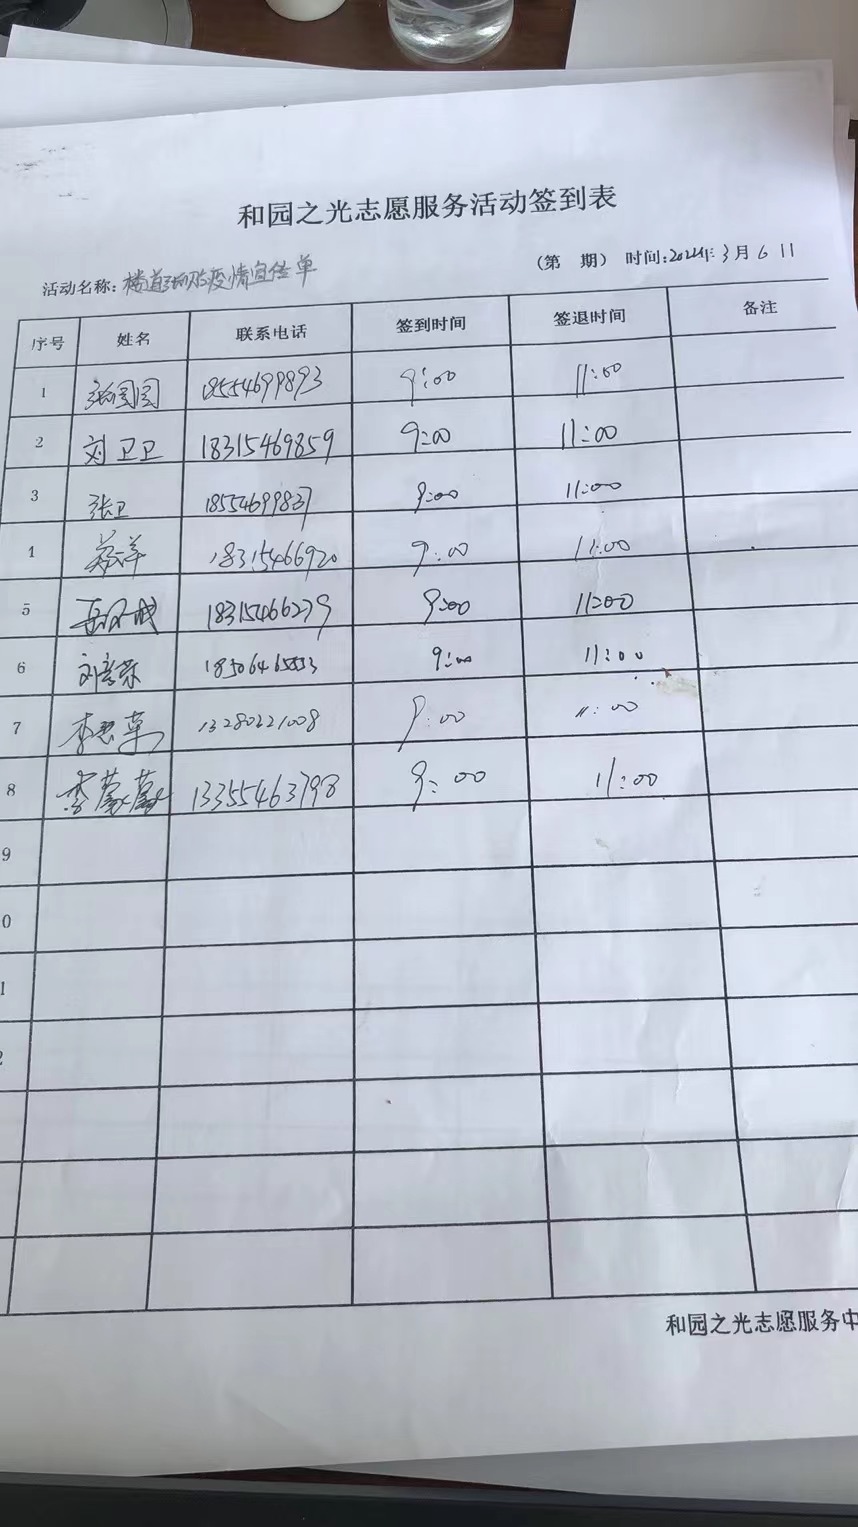 和园之光志愿服务活动签到表
活动名称:楼道张贴疫情宣传单 (第 期) 时间: 年3月6日
序号 姓名 联系电话 签到时间 签退时间 备注
1 张园园 18554699893 9:00 11:00
2 刘卫卫 18315469859 9:00 11:00
3 张卫 18554699837 9:00 11:00
4 18315466920 9:00 11:00
5 18315466279 9:00 11:00
6 9:00 11:00
7 13280221008 9:00 11:00
8 李蒙蒙 13355463798 9:00 11:00
9
0
1
2
和园之光志愿服务中